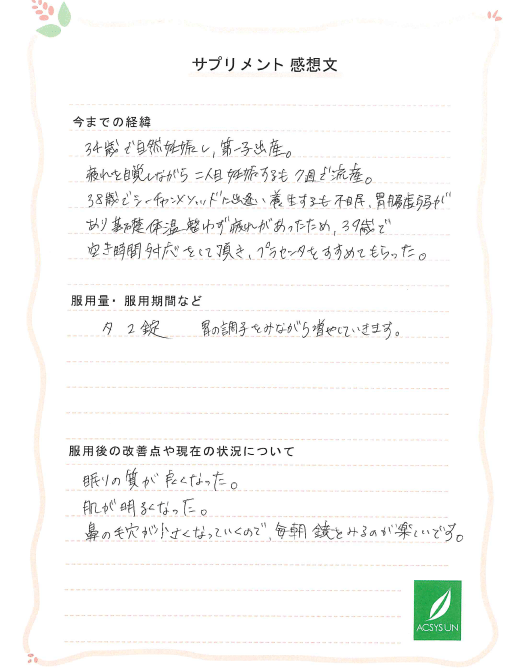 サプリメント 感想文
今までの経緯
34歳で自然妊娠し、第一子出産。
疲れを自覚しながら二人目妊娠するも7週で流産。
38歳でシーチャンメソッドに出逢い養生するも不眠、胃腸虚弱が
あり基礎体温整わず疲れがあったため、39歳で
空き時間対応をして頂き、プラセンタをすすめてもらった。
服用量・服用期間など
夕 2錠 胃の調子をみながら増やしていきます。
服用後の改善点や現在の状況について
眠りの質が良くなった。
肌が明るくなった。
鼻の毛穴が小さくなっていくので、毎朝鏡をみるのが楽しいです。
ACSYSUN